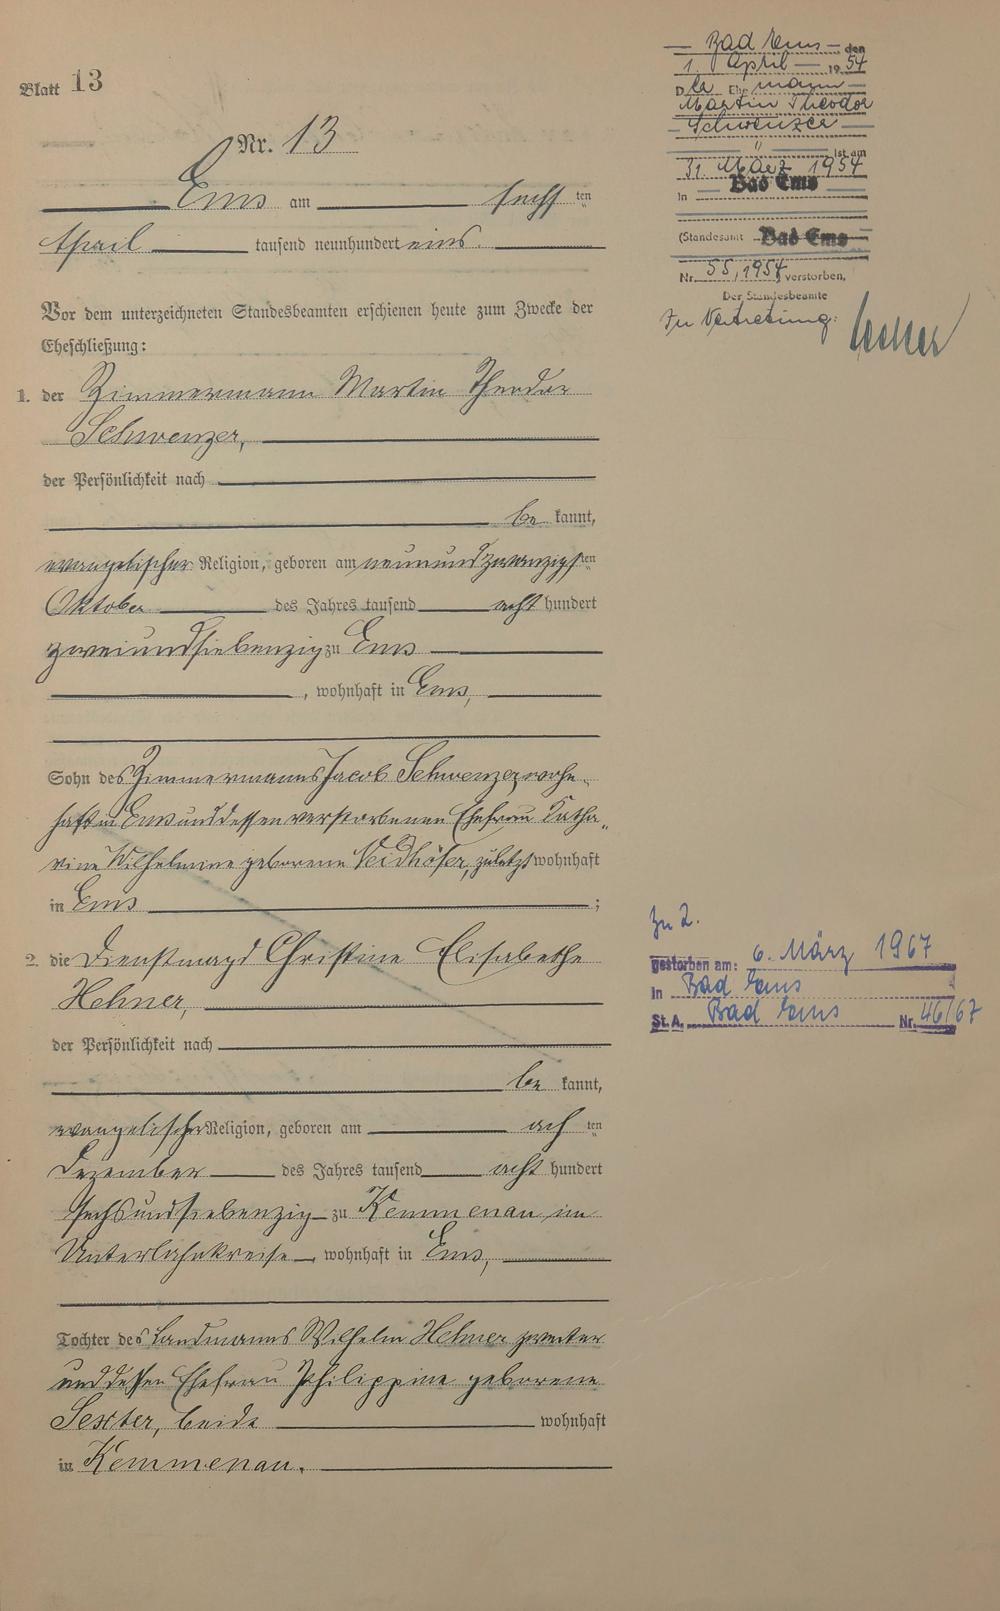 Blatt 13
Nr. 13
Ems am sechsten
April tausend neunhundert eins.
Vor dem unterzeichneten Standesbeamten erschienen heute zum Zwecke der
Eheschließung:
1. der Zimmermann Martin Theodor
Schwenzer,
der Persönlichkeit nach
be kannt,
evangelischer Religion, geboren am neunundzwanzigsten
Oktober des Jahres tausend acht hundert
zweiundsiebenzig zu Ems
, wohnhaft in Ems,
Sohn des Zimmermanns Jacob Schwenzer, wohn-
haft in Ems und dessen verstorbenen Ehefrau Katha-
rine Wilhelmine geborene Neidhöfer, zuletzt wohnhaft
in Ems ;
2. die Dienstmagd Christine Elisabethe
Hehner,
der Persönlichkeit nach
be kannt,
evangelischer Religion, geboren am achten
Dezember des Jahres tausend acht hundert
sechsundsiebenzig zu Kemmenau im
Unterlahnkreise, wohnhaft in Ems,
Tochter des Landmanns Wilhelm Hehner zweiter
und dessen Ehefrau Philippine geborene
Sexter, beide wohnhaft
in Kemmenau.
Bad Ems den
1. April 1954
D er Ehe mann
Martin Theodor
Schwenzer
" ist am
31. März 1954
in Bad Ems
(Standesamt Bad Ems
Nr. 55, 1954 verstorben,
Der Standesbeamte
In Vertretung:
Zu 2.
gestorben am: 6. März 1967
in Bad Ems
St.A. Bad Ems Nr. 46/67